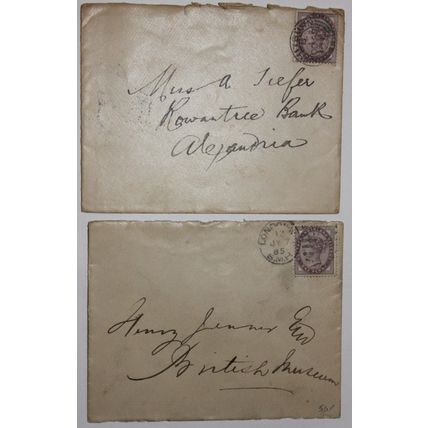 Miss A Telfer
Rowantree Bank
Alexandria
LONDON
12
JY 7
85
Henry Jenner Esq
British Museum